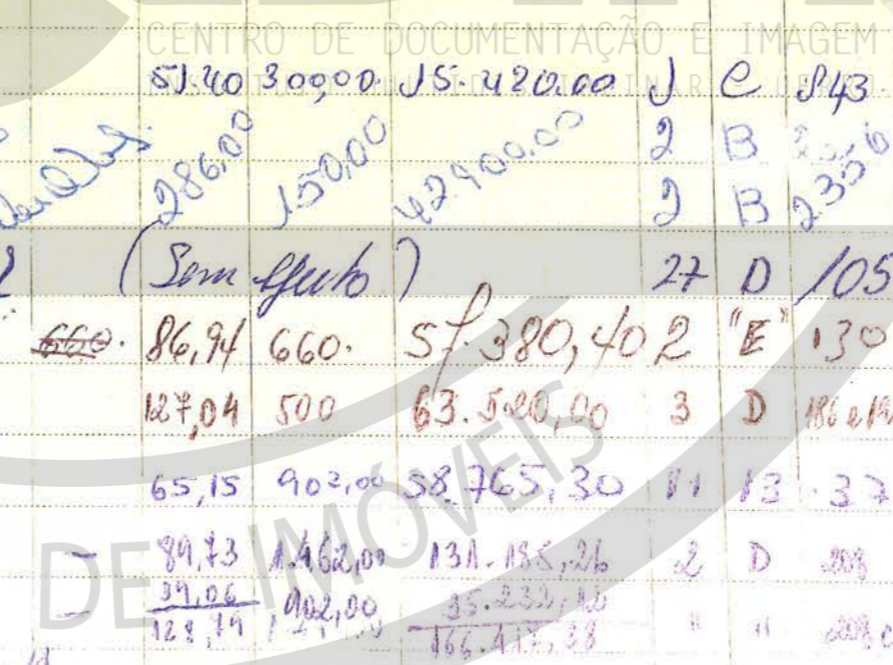 CENTRO DE DOCUMENTAÇÃO E IMAGEM
51.40 300,00 15.420.00 1 C 143
2 B
286,00 150,00 42.900.00 2 B 235
(Sem efeito) 27 D 105
660. 86,94 660. 57.380,40 2 "E" 130
127,04 500 63.520,00 3 D 186 e
65,15 902,00 58.765,30 11 13 37
DE IMÓVEIS
— 89,73 1.462,00 131.185,26 2 D 208
— 39,06 902,00 35.232,12 " " 208
128,79 166.417,38